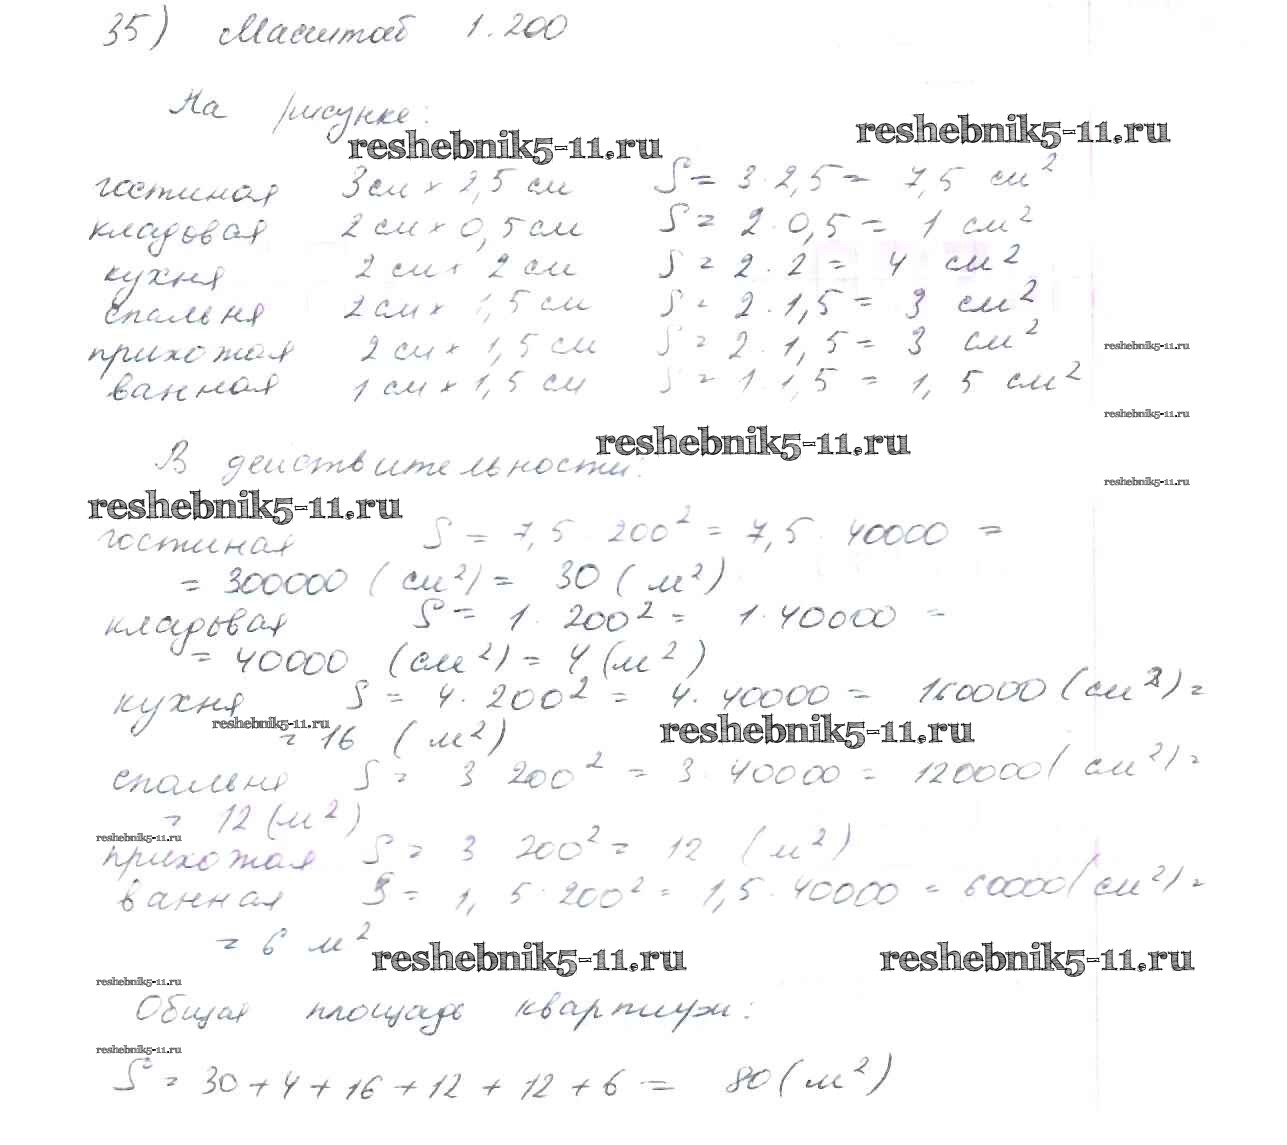 35) Масштаб 1:200
На рисунке:
reshebnik5-11.ru
reshebnik5-11.ru
гостиная 3см × 2,5 см S = 3·2,5 = 7,5 см²
кладовая 2 см × 0,5 см S = 2·0,5 = 1 см²
кухня 2 см × 2 см S = 2·2 = 4 см²
спальня 2 см × 1,5 см S = 2·1,5 = 3 см²
прихожая 2 см × 1,5 см S = 2·1,5 = 3 см²
reshebnik5-11.ru
ванная 1 см × 1,5 см S = 1·1,5 = 1,5 см²
reshebnik5-11.ru
reshebnik5-11.ru
В действительности:
reshebnik5-11.ru
reshebnik5-11.ru
гостиная S = 7,5·200² = 7,5·40000 =
= 300000 (см²) = 30 (м²)
кладовая S = 1·200² = 1·40000 =
= 40000 (см²) = 4 (м²)
кухня S = 4·200² = 4·40000 = 160000 (см²) =
reshebnik5-11.ru
reshebnik5-11.ru
= 16 (м²)
спальня S = 3·200² = 3·40000 = 120000 (см²) =
= 12 (м²)
reshebnik5-11.ru
прихожая S = 3·200² = 12 (м²)
ванная S = 1,5·200² = 1,5·40000 = 60000 (см²) =
= 6 м²
reshebnik5-11.ru
reshebnik5-11.ru
reshebnik5-11.ru
Общая площадь квартиры:
reshebnik5-11.ru
S = 30 + 4 + 16 + 12 + 12 + 6 = 80 (м²)